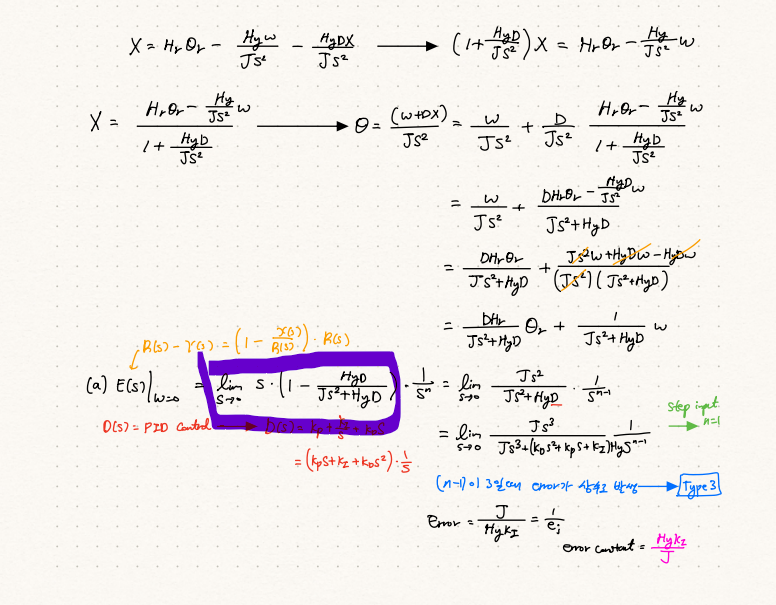 X = HrΘr − Hyw/Js² − HyDX/Js² ⟶ (1+HyD/Js²)X = HrΘr − Hy/Js² w
X = (HrΘr − Hy/Js² w)/(1 + HyD/Js²) ⟶ Θ = (w+DX)/Js² = w/Js² + D/Js² · (HrΘr − Hy/Js² w)/(1 + HyD/Js²)
= w/Js² + (DHrΘr − HyD/Js² w)/(Js²+HyD)
= DHrΘr/(Js²+HyD) + (Js²w + HyDw − HyDw)/((Js²)(Js²+HyD))
= DHr/(Js²+HyD) Θr + 1/(Js²+HyD) w
R(s) − Y(s) = (1 − Y(s)/R(s)) · R(s)
(a) E(s)|w=0 = lim s→0 s · (1 − HyD/(Js²+HyD)) · 1/sⁿ = lim s→0 Js²/(Js²+HyD) · 1/sⁿ⁻¹
step input
⟶ n=1
D(s) = PID control ⟶ D(s) = kp + kI/s + kDs
= lim s→0 Js³/(Js³+(kDs²+kps+kI)Hy) 1/sⁿ⁻¹
= (kps + kI + kDs²) · 1/s
(n-1)이 3일때 error가 상수로 발생 ⟶ Type 3
Error = J/HykI = 1/ej
error constant = HykI/J